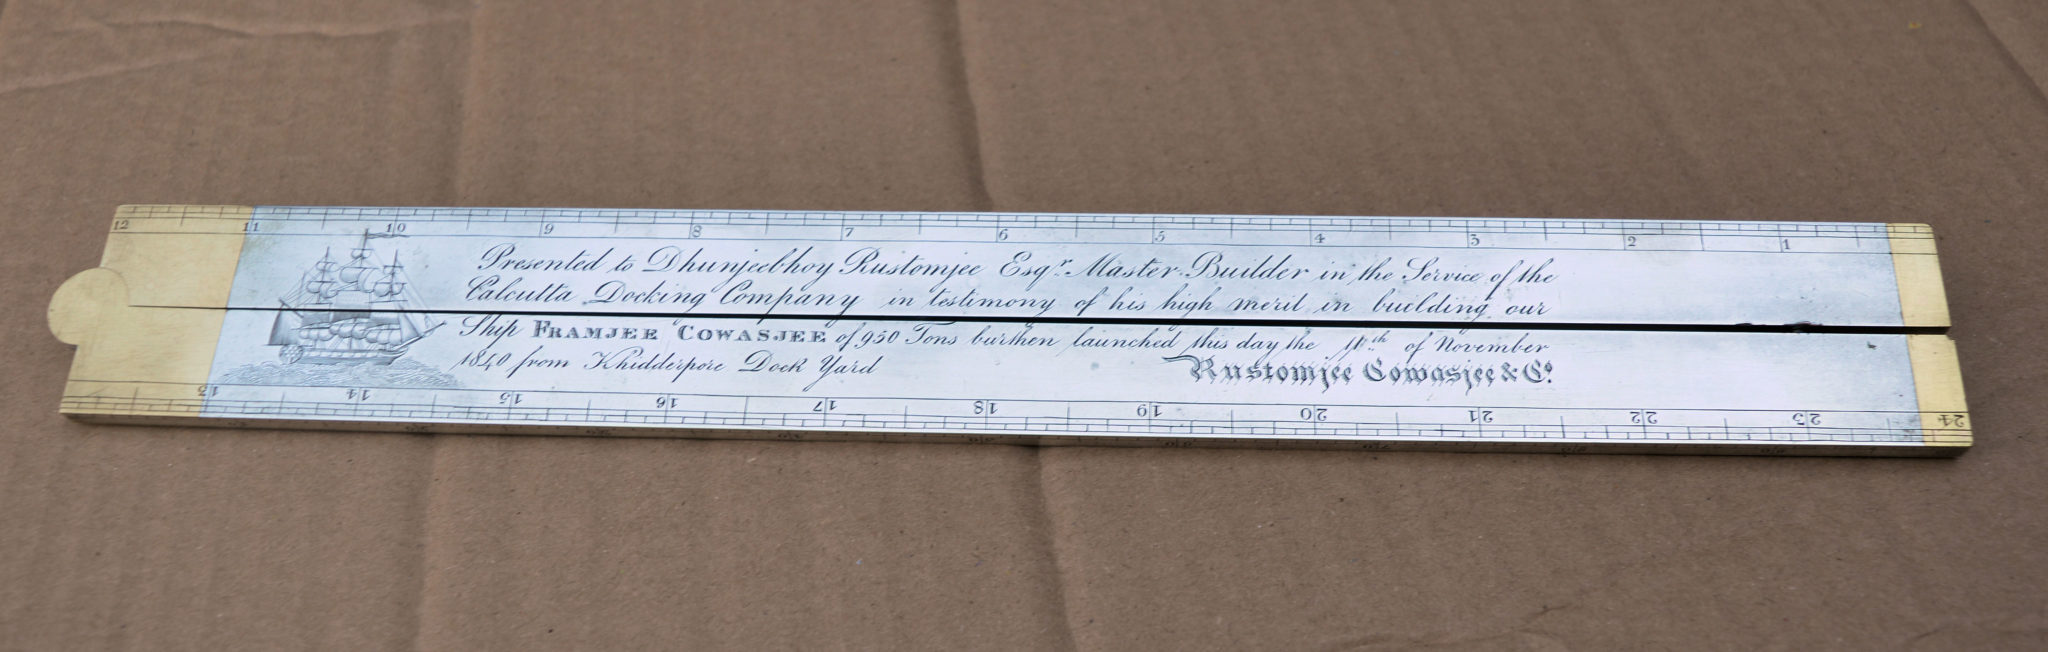 12 11 10 9 8 7 6 5 4 3 2 1
Presented to Dhunjeebhoy Rustomjee Esqr. Master Builder in the Service of the
Calcutta Docking Company in testimony of his high merit in building our
Ship FRAMJEE COWASJEE of 950 Tons burthen launched this day the 11th of November
1840 from Khidderpore Dock Yard
Rustomjee Cowasjee & Co.
13 14 15 16 17 18 19 20 21 22 23 24